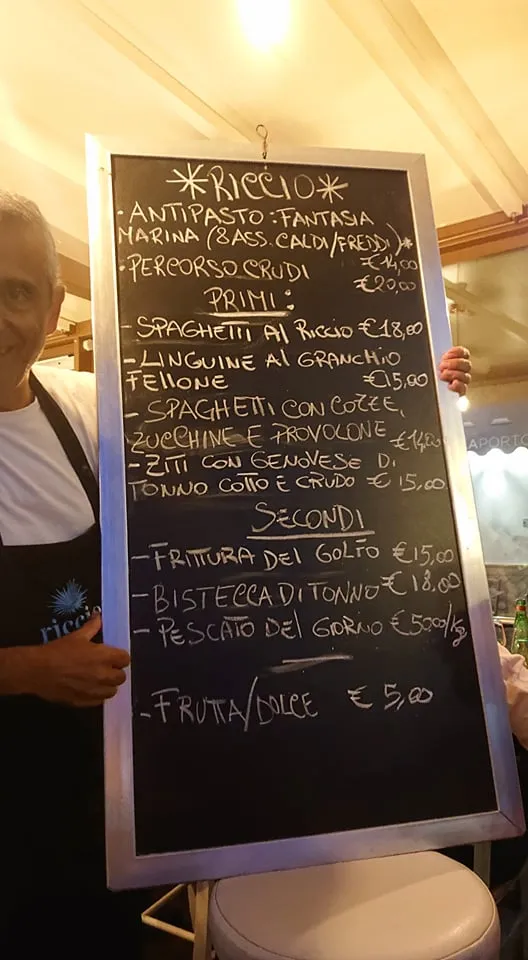 *RICCIO*
• ANTIPASTO: FANTASIA
MARINA (8 ASS. CALDI/FREDDI)*
€14,00
• PERCORSO CRUDI
€20,00
PRIMI:
- SPAGHETTI AL RICCIO €18,00
- LINGUINE AL GRANCHIO
FELLONE €15,00
- SPAGHETTI CON COZZE,
ZUCCHINE E PROVOLONE €14,00
- ZITI CON GENOVESE DI
TONNO COTTO E CRUDO € 15,00
SECONDI
- FRITTURA DEL GOLFO €15,00
- BISTECCA DI TONNO € 18,00
- PESCATO DEL GIORNO €50,00/Kg
- FRUTTA/DOLCE € 5,00
riccio
APORTO